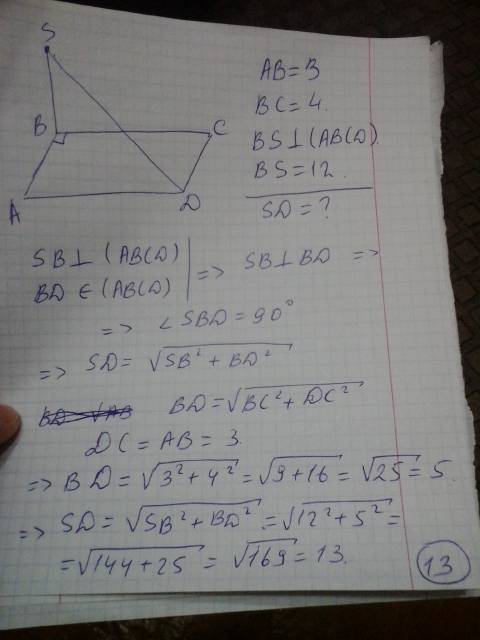 S
B
C
A
D
AB = 3
BC = 4.
BS ⊥ (ABCD).
BS = 12.
SD = ?
SB ⊥ (ABCD)
BD ∈ (ABCD)
=> SB ⊥ BD =>
=> ∠SBD = 90°
=> SD = √SB² + BD²
BD = √BC² + DC²
DC = AB = 3.
=> BD = √3² + 4² = √9 + 16 = √25 = 5.
=> SD = √SB² + BD² = √12² + 5² =
= √144 + 25 = √169 = 13.
13